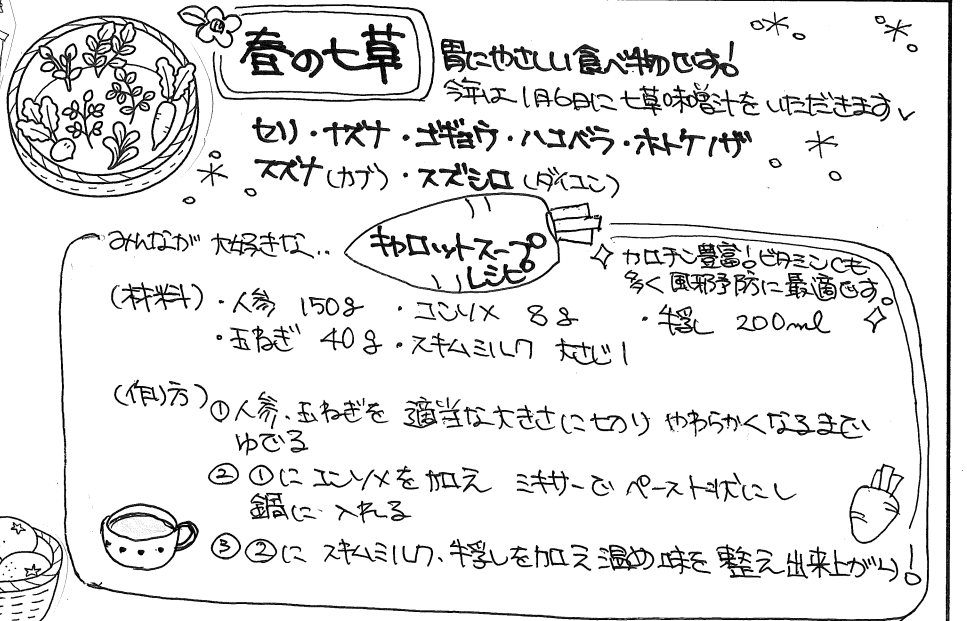 春の七草
胃にやさしい食べ物です!
今年は1月6日に七草味噌汁をいただきます
セリ・ナズナ・ゴギョウ・ハコベラ・ホトケノザ
スズナ(カブ)・スズシロ(ダイコン)
みんなが大好きな..
キャロットスープ
レシピ
カロチン豊富!ビタミンCも
多く風邪予防に最適です。
(材料)・人参 150g ・コンソメ 8g ・牛乳 200ml
・玉ねぎ 40g ・スキムミルク 大さじ1
(作り方)
①人参、玉ねぎを適当な大きさに切り やわらかくなるまで
ゆでる
②①にコンソメを加え ミキサーで ペースト状にし
鍋に入れる
③②に スキムミルク、牛乳しを加え温め味を整え出来上がり!